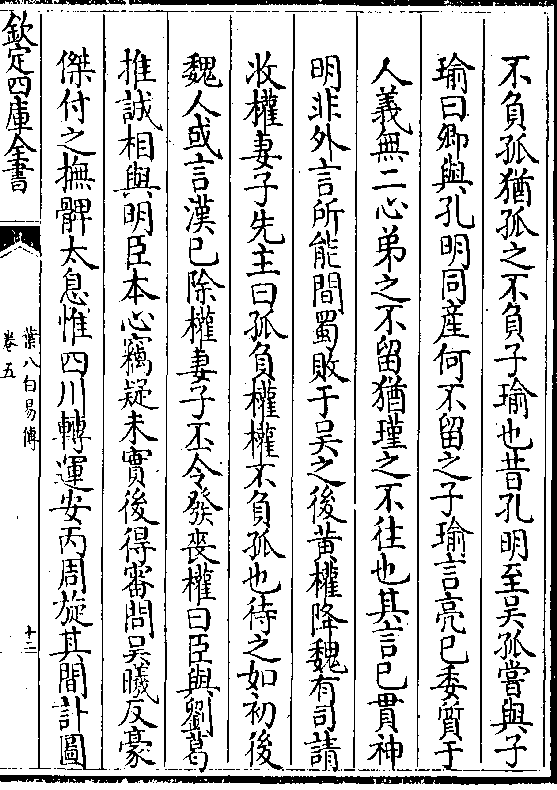 不負孤猶孤之不負子瑜也昔孔明至吳孤嘗與子
瑜曰卿與孔明同産何不留之子瑜言亮已委質于
人義無二心弟之不留猶瑾之不往也其言已貫神
明非外言所能間蜀敗于吳之後黃權降魏有司請
收權妻子先主曰孤負權權不負孤也待之如初後
魏人或言漢已除權妻子丕令發喪權曰臣與劉葛
推誠相與明臣本心竊疑未實後得審問吳曦反豪
傑付之撫髀太息惟四川轉運安丙周旋其間計圖
欽定四庫全書
葉八白易傳
卷五
十二